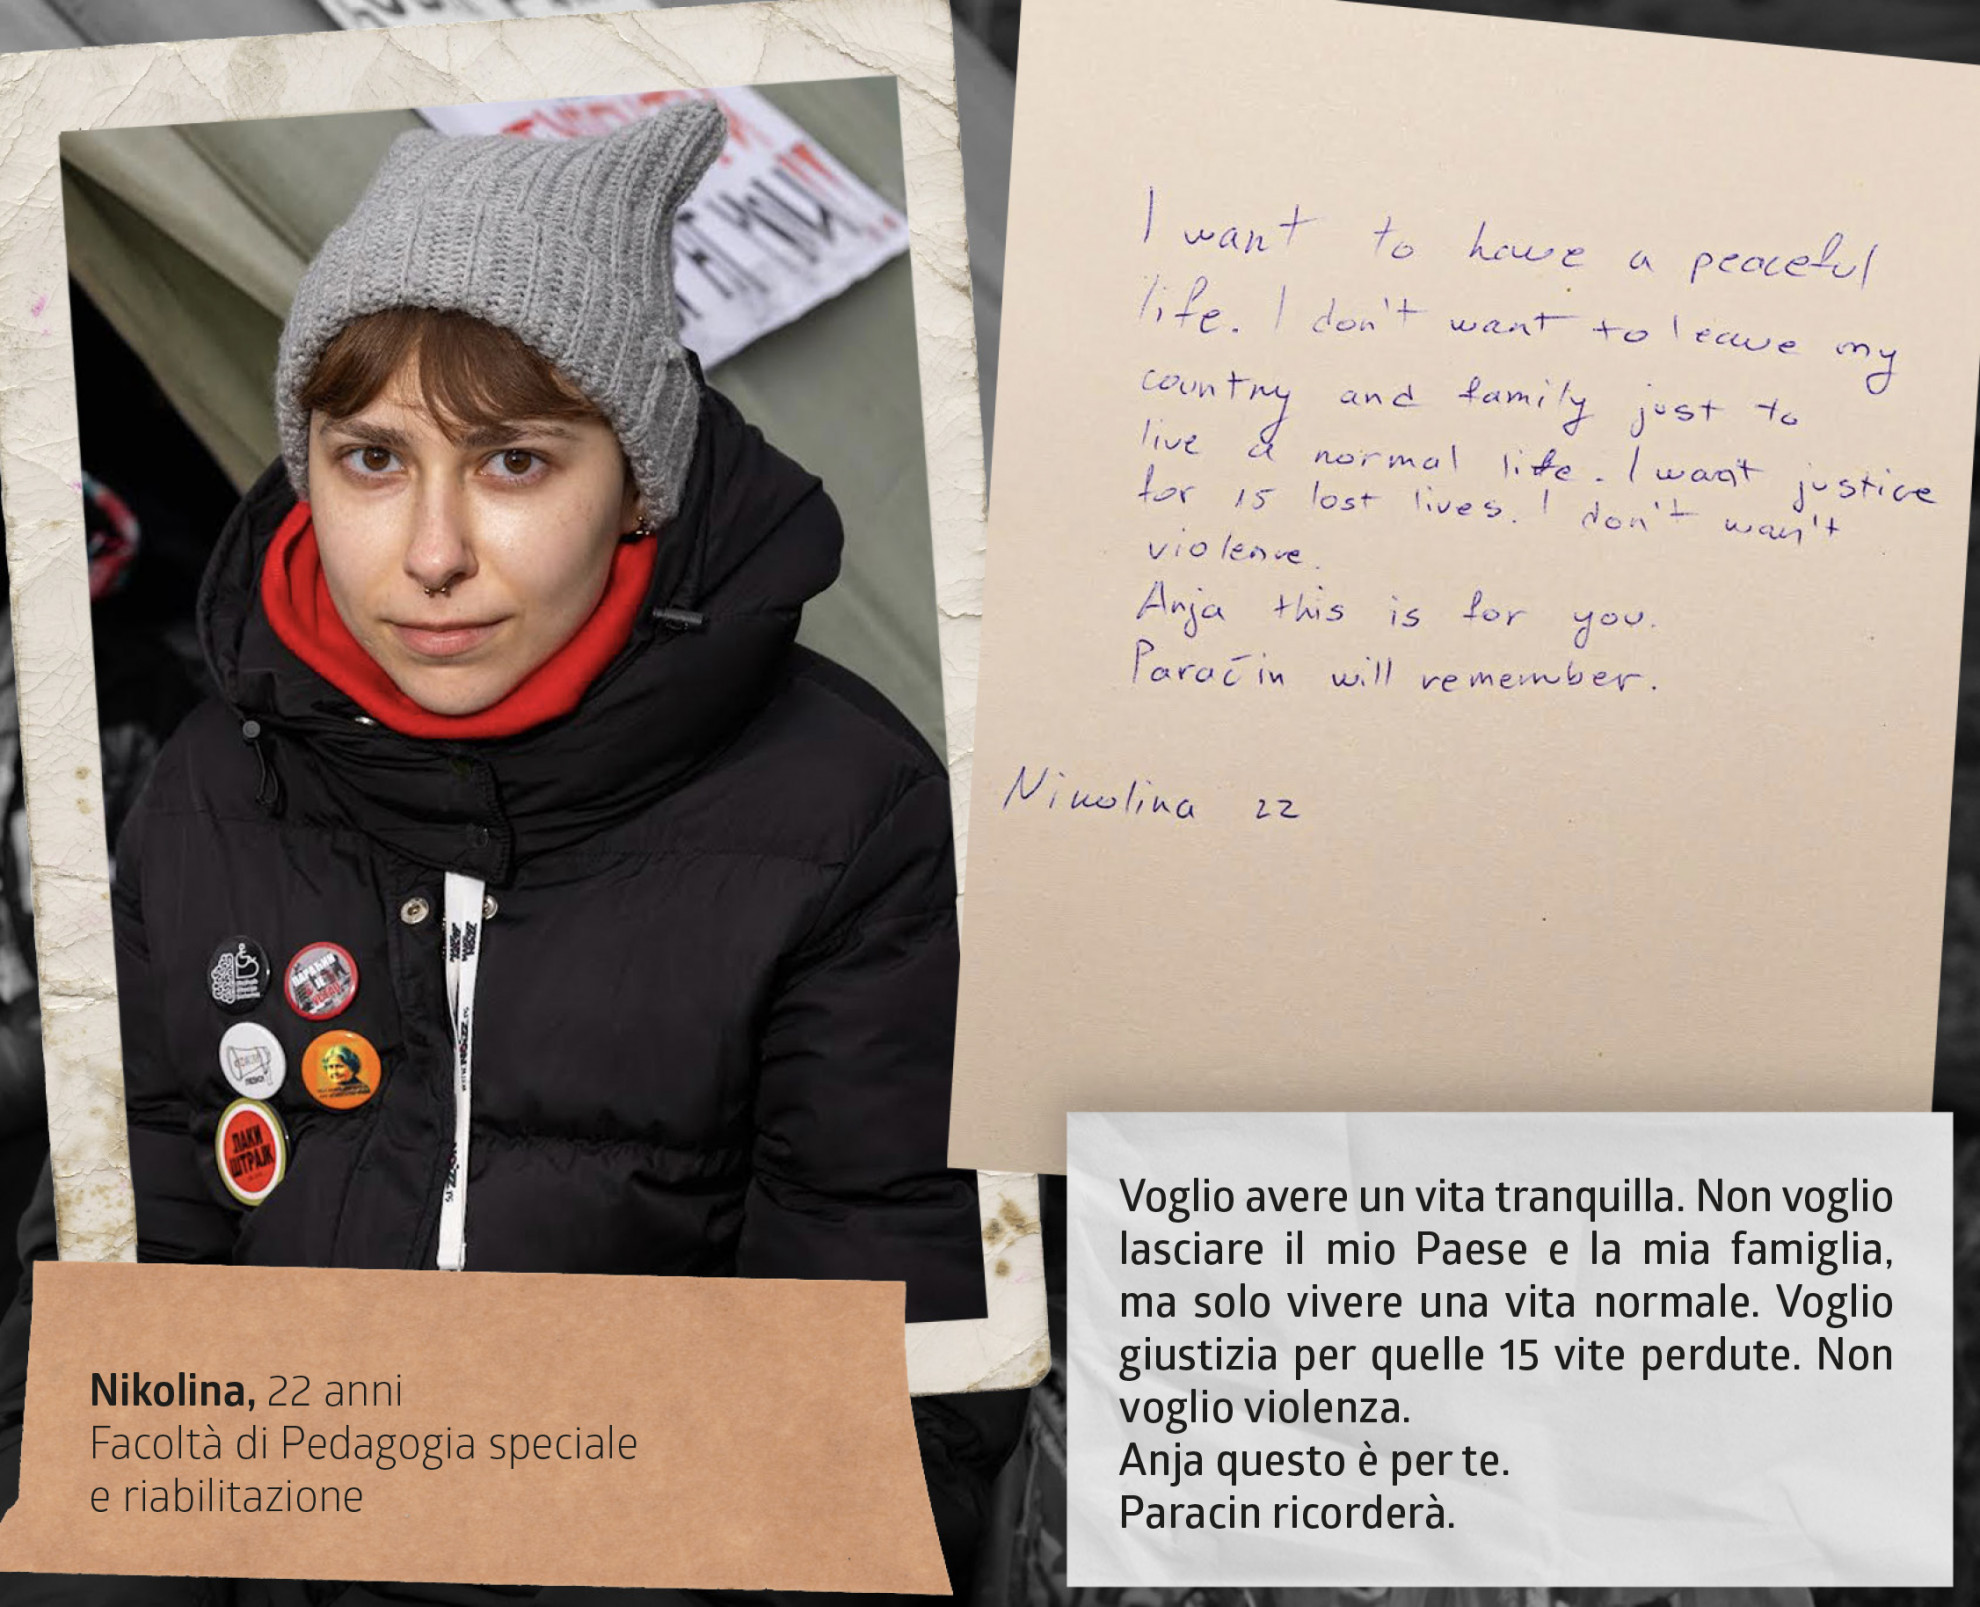 I want to have a peaceful
life. I don't want to leave my
country and family just to
live a normal life. I want justice
for 15 lost lives. I don't wan't
violence.
Anja this is for you.
Paraćin will remember.
Nikolina 22
ПАРАЋИН
ЈЕ
ЛАКИ
ШТРАЈК
Nikolina, 22 anni
Facoltà di Pedagogia speciale
e riabilitazione
Voglio avere un vita tranquilla. Non voglio
lasciare il mio Paese e la mia famiglia,
ma solo vivere una vita normale. Voglio
giustizia per quelle 15 vite perdute. Non
voglio violenza.
Anja questo è per te.
Paracin ricorderà.